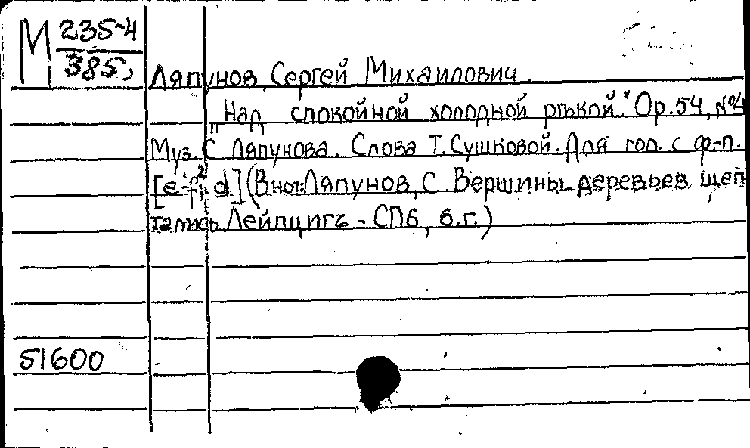 М 235-4
385,
Ляпунов, Сергей Михаилович.
"Над спокойной холодной рѣкой." Op. 54, №4
Муз. С. Ляпунова. Слова Т. Сушковой. Для гол. с ф-п.
[e-f² d] (В нот: Ляпунов, С. Вершины деревьев шеп-
тались Лейпцигъ - СПб, б.г.)
51600